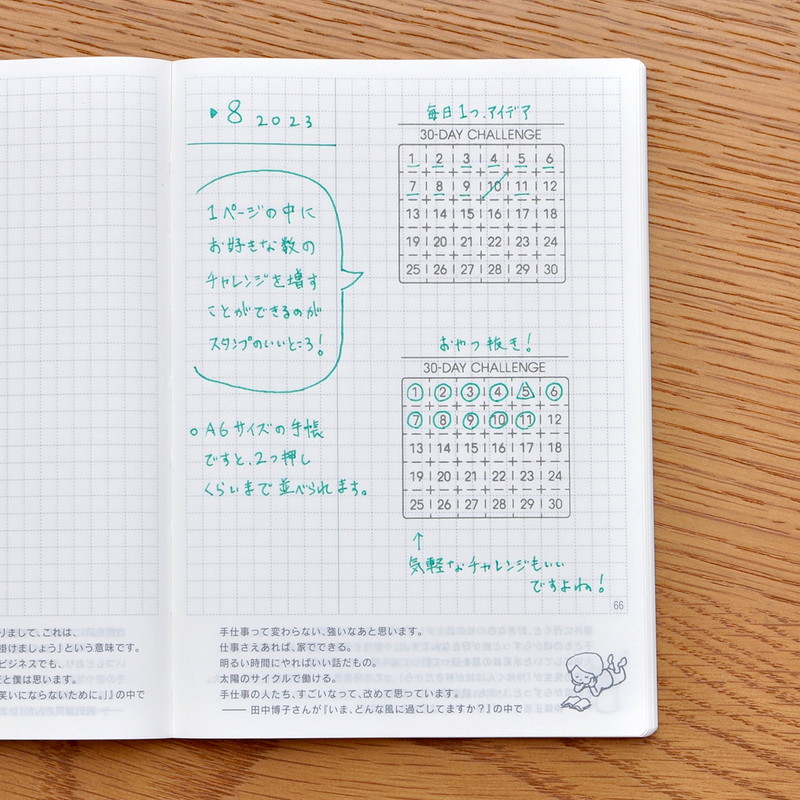 ▶8 2023
1ページの中に
お好きな数の
チャレンジを増す
ことができるのが
スタンプのいいところ!
○A6サイズの手帳
ですと、2つ押し
くらいまで並べられます。
毎日1つ、アイデア
30-DAY CHALLENGE
1 2 3 4 5 6
7 8 9 10 11 12
13 14 15 16 17 18
19 20 21 22 23 24
25 26 27 28 29 30
おやつ抜き!
30-DAY CHALLENGE
1 2 3 4 5 6
7 8 9 10 11 12
13 14 15 16 17 18
19 20 21 22 23 24
25 26 27 28 29 30
↑
気軽なチャレンジもいい
ですよね!
66
りまして、これは、
掛けましょう」という意味です。
ビジネスでも、
と僕は思います。
笑いにならないために。』』の中で
手仕事って変わらない、強いなあと思います。
仕事さえあれば、家でできる。
明るい時間にやればいい話だもの。
太陽のサイクルで働ける。
手仕事の人たち、すごいなって、改めて思っています。
—— 田中博子さんが『いま、どんな風に過ごしてますか?』の中で